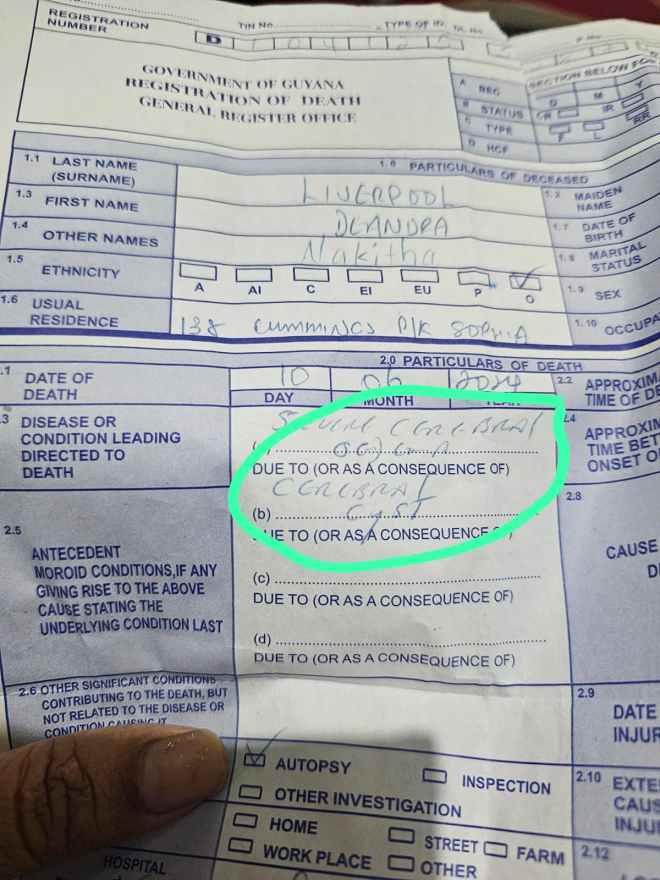 REGISTRATION NUMBER
TIN No.
TYPE OF
D
GOVERNMENT OF GUYANA
REGISTRATION OF DEATH
GENERAL REGISTER OFFICE
SECTION BELOW FOR
A REG
B STATUS
C TYPE
D HCF
D M Y
CR IR RR
F L
1.0 PARTICULARS OF DECEASED
1.1 LAST NAME (SURNAME) LIVERPOOL
1.2 MAIDEN NAME
1.3 FIRST NAME DEANDRA
1.7 DATE OF BIRTH
1.4 OTHER NAMES Nakitha
1.8 MARITAL STATUS
1.5 ETHNICITY
A AI C EI EU P O
1.9 SEX
1.6 USUAL RESIDENCE 138 CUMMINGS P/K SOPHIA
1.10 OCCUPA
2.0 PARTICULARS OF DEATH
.1 DATE OF DEATH 10 06 2024
DAY MONTH YEAR
2.2 APPROXIMA
TIME OF DE
.3 DISEASE OR CONDITION LEADING DIRECTED TO DEATH
SEVERE CEREBRAL
oedema
DUE TO (OR AS A CONSEQUENCE OF)
2.4 APPROXIM
TIME BET
ONSET O
CEREBRAL
(b) Cyst
DUE TO (OR AS A CONSEQUENCE OF)
2.5 ANTECEDENT
MOROID CONDITIONS,IF ANY
GIVING RISE TO THE ABOVE
CAUSE STATING THE
UNDERLYING CONDITION LAST
(c)
DUE TO (OR AS A CONSEQUENCE OF)
(d)
DUE TO (OR AS A CONSEQUENCE OF)
2.8
CAUSE
2.6 OTHER SIGNIFICANT CONDITIONS
CONTRIBUTING TO THE DEATH, BUT
NOT RELATED TO THE DISEASE OR
CONDITION CAUSING IT
2.9
DATE
INJUR
AUTOPSY
INSPECTION
OTHER INVESTIGATION
2.10 EXTE
CAUS
INJU
HOME
STREET
FARM
WORK PLACE
OTHER
2.12
HOSPITAL